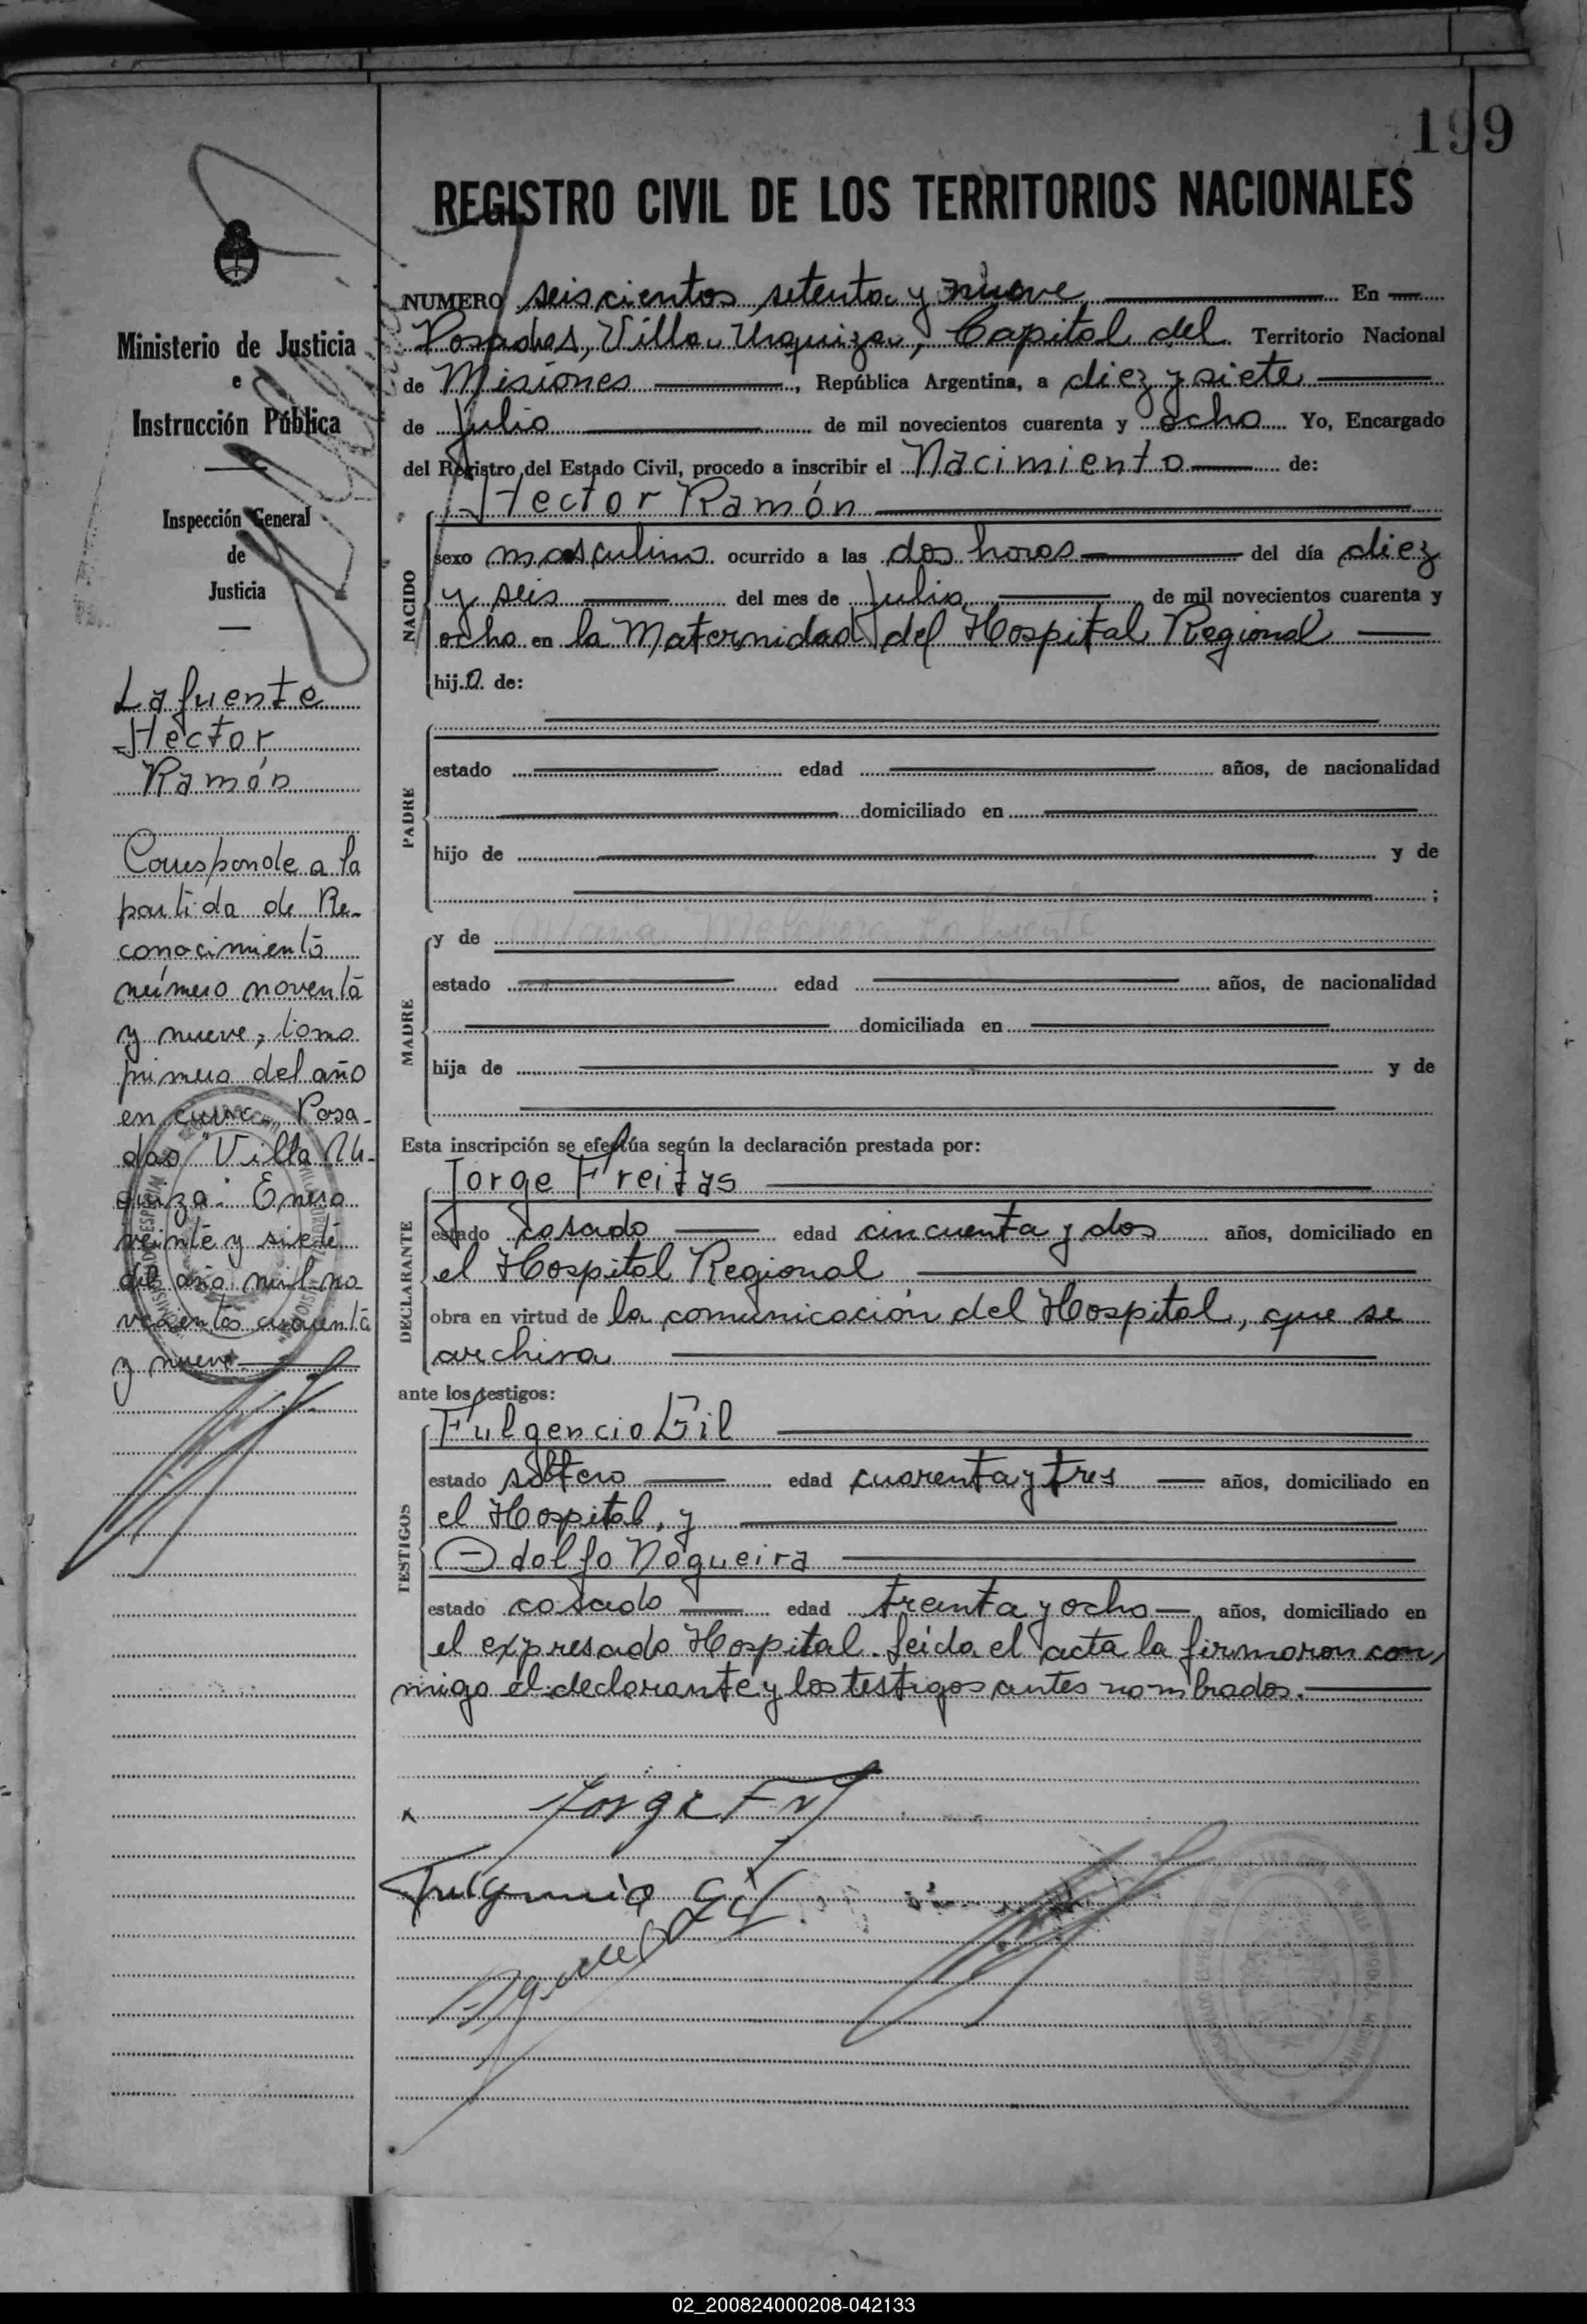 199
REGISTRO CIVIL DE LOS TERRITORIOS NACIONALES
NUMERO seiscientos setenta y nueve En
Posadas, Villa Urquiza, Capital del Territorio Nacional
de Misiones, República Argentina, a diez y siete
de Julio de mil novecientos cuarenta y ocho Yo, Encargado
del Registro del Estado Civil, procedo a inscribir el Nacimiento de:
Hector Ramón
NACIDO
sexo masculino ocurrido a las dos horas del día diez
y seis del mes de Julio de mil novecientos cuarenta y
ocho en la Maternidad del Hospital Regional
hijo de:
PADRE
estado edad años, de nacionalidad
domiciliado en
hijo de y de
;
MADRE
y de Lafuente
estado edad años, de nacionalidad
domiciliada en
hija de y de
Esta inscripción se efectúa según la declaración prestada por:
DECLARANTE
Jorge Freitas
estado casado edad cincuenta y dos años, domiciliado en
el Hospital Regional
obra en virtud de la comunicación del Hospital, que se
archiva
ante los testigos:
TESTIGOS
Fulgencio Gil
estado soltero edad cuarenta y tres años, domiciliado en
el Hospital, y
Adolfo Nogueira
estado casado edad treinta y ocho años, domiciliado en
el expresado Hospital. Leída el acta la firmaron con-
migo el declarante y los testigos antes nombrados.
Fulgencio Gil
Ministerio de Justicia
e
Instrucción Pública
Inspección General
de
Justicia
Lafuente
Hector
Ramón
Corresponde a la
partida de Re-
conocimiento
número noventa
y nueve, tomo
primero del año
en curso. Posa-
das "Villa Ur-
quiza". Enero
veinte y siete
del año mil no-
vecientos cuarenta
y nueve
02_200824000208-042133